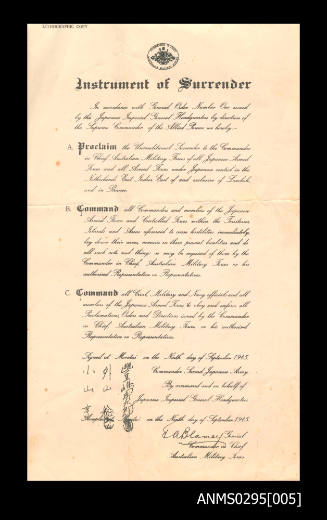 LITHOGRAPHIC COPY
Instrument of Surrender
In accordance with General Order Number One issued
by the Japanese Imperial General Headquarters by direction of
the Supreme Commander of the Allied Powers we hereby:-
A. Proclaim the Unconditional Surrender to the Commander
in Chief Australian Military Forces of all Japanese Armed
Forces and all Armed Forces under Japanese control in the
Netherlands East Indies East of and exclusive of Lombok
and in Borneo.
B. Command all Commanders and members of the Japanese
Armed Forces and Controlled Forces within the Territories
Islands and Areas aforesaid to cease hostilities immediately,
lay down their arms, remain in their present localities and do
all such acts and things as may be required of them by the
Commander in Chief, Australian Military Forces or his
authorised Representative or Representatives.
C. Command all Civil, Military and Navy officials and all
members of the Japanese Armed Forces to obey and enforce all
Proclamations, Orders and Directives issued by the Commander
in Chief, Australian Military Forces or his authorised
Representative or Representatives.
Signed at Morotai on the Ninth day of September 1945.
Commander Second Japanese Army
By command and in behalf of
Japanese Imperial General Headquarters.
Accepted at Morotai on the Ninth day of September 1945.
T.A.Blamey General
Commander in Chief
Australian Military Forces
ANMS0295[005]